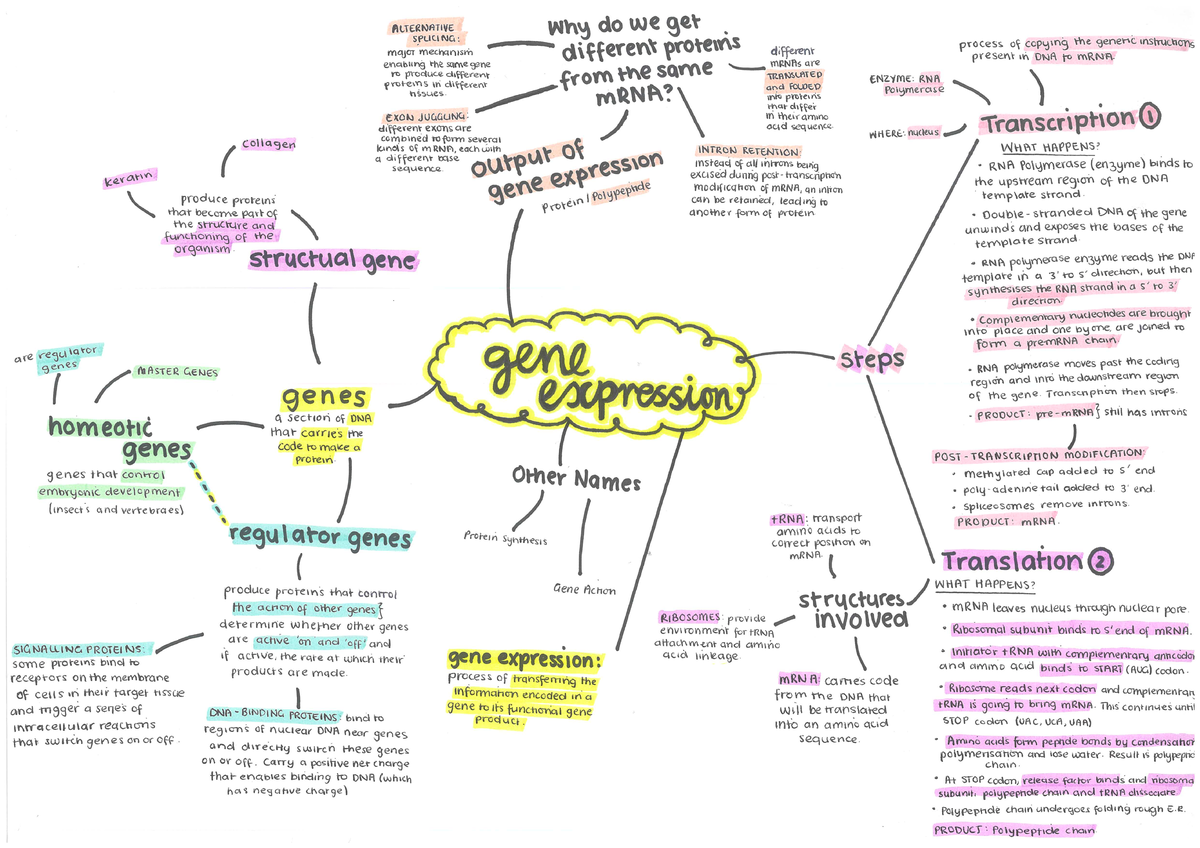 ALTERNATIVE
SPLICING:
major mechanism
enabling the same gene
to produce different
proteins in different
tissues.
EXON JUGGLING:
different exons are
combined to form several
kinds of mRNA, each with
a different base
sequence.
Why do we get
different proteins
from the same
mRNA?
different
mRNAs are
TRANSLATED
and FOLDED
into proteins
that differ
in their amino
acid sequence
INTRON RETENTION:
instead of all introns being
excised during post-transcription
modification of mRNA, an intron
can be retained, leading to
another form of protein
output of
gene expression
Protein / Polypeptide
collagen
keratin
produce proteins
that become part of
the structure and
functioning of the
organism.
structual gene
gene
expression
genes
a section of DNA
that carries the
code to make a
protein
are regulator
genes
MASTER GENES
homeotic
genes
genes that control
embryonic development
(insects and vertebraes)
regulator genes
produce proteins that control
the action of other genes}
determine whether other genes
are active 'on' and 'off' and
if active, the rate at which their
products are made.
SIGNALLING PROTEINS:
some proteins bind to
receptors on the membrane
of cells in their target tissue
and trigger a series of
intracellular reactions
that switch genes on or off.
DNA-BINDING PROTEINS: bind to
regions of nuclear DNA near genes
and directly switch these genes
on or off. Carry a positive net charge
that enables binding to DNA (which
has negative charge)
Other Names
Protein Synthesis
Gene Action
gene expression:
process of transferring the
information encoded in a
gene to its functional gene
product.
steps
process of copying the genetic instructions
present in DNA to mRNA.
ENZYME: RNA
Polymerase
WHERE: nucleus
Transcription 1
WHAT HAPPENS?
• RNA Polymerase (enzyme) binds to
the upstream region of the DNA
template strand.
• Double-stranded DNA of the gene
unwinds and exposes the bases of the
template strand.
• RNA polymerase enzyme reads the DNA
template in a 3' to 5' direction, but then
synthesises the RNA strand in a 5' to 3'
direction.
• Complementary nucleotides are brought
into place and one by one, are joined to
form a premRNA chain.
• RNA polymerase moves past the coding
region and into the downstream region
of the gene. Transcription then stops.
• PRODUCT: pre-mRNA} still has introns
POST-TRANSCRIPTION MODIFICATION:
• methylated cap added to 5' end
• poly-adenine tail added to 3' end.
• spliceosomes remove introns.
PRODUCT: mRNA.
Translation 2
WHAT HAPPENS?
• mRNA leaves nucleus through nuclear pore.
• Ribosomal subunit binds to 5' end of mRNA.
• Initiator tRNA with complementary anticodon
and amino acid binds to START (AUG) codon.
• Ribosome reads next codon and complementary
tRNA is going to bring mRNA. This continues until
STOP codon (UAC, UCA, UAA)
• Amino acids form peptide bonds by condensation
polymerisation and lose water. Result is polypeptid
chain.
• At STOP codon, release factor binds and ribosomal
subunit, polypeptide chain and tRNA dissociate.
• Polypeptide chain undergoes folding rough E.R.
PRODUCT: Polypeptide chain
structures
involved
tRNA: transport
amino acids to
correct position on
mRNA.
RIBOSOMES: provide
environment for tRNA
attachment and amino
acid linkage.
mRNA: carries code
from the DNA that
will be translated
into an amino acid
sequence.